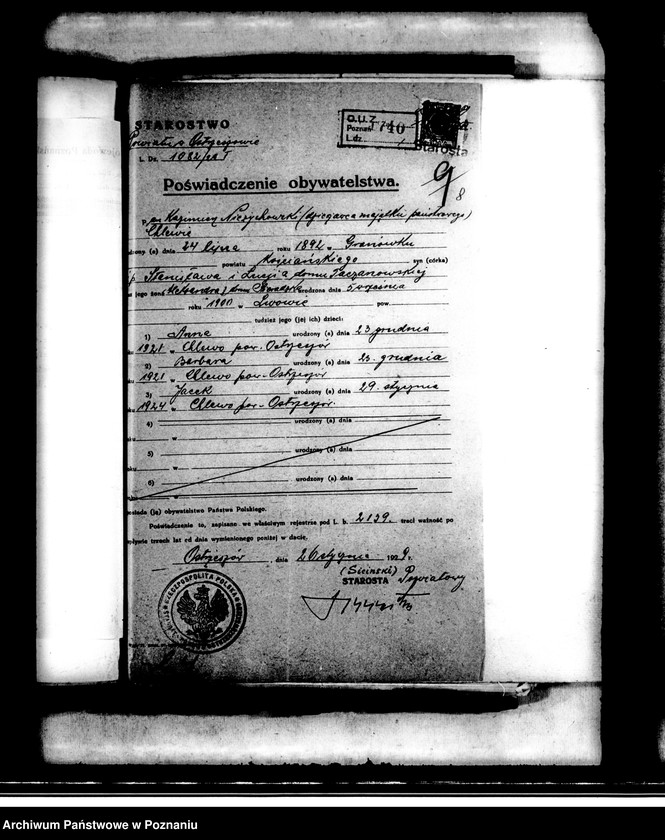 STAROSTWO
Powiatu w Ostrzeszowie
L. Dz. 1982/28 I
O.U.Z.
Poznań
L.dz.
1740
Starosta
9
8
Poświadczenie obywatelstwa.
p. Kazimierz Niezychowski (dzierżawca majątku państwowego)
Chlewie
urodzony (a) dnia 24 lipca roku 1892 w Granówku
powiatu Kościańskiego syn (córka)
Stanisława i Łucji z domu Taczanowskiej
jego żona Aleksandra z domu urodzona dnia 5 września
roku 1900 w Lwowie pow.
tudzież jego (jej ich) dzieci:
1) Anna urodzony (a) dnia 23 grudnia
1921 w Chlewo pow. Ostrzeszów
2) Barbara urodzony (a) dnia 23. grudnia
1921 w Chlewo pow. Ostrzeszów
3) Jacek urodzony (a) dnia 29. stycznia
1924 w Chlewo pow. Ostrzeszów.
4) urodzony (a) dnia
w
5) urodzony (a) dnia
w
6) urodzony (a) dnia
w
posiada (ją) obywatelstwo Państwa Polskiego.
Poświadczenie to, zapisano we właściwym rejestrze pod L. b. 2139. traci ważność po
upływie trzech lat od dnia wymienionego poniżej w dacie.
Ostrzeszów, dnia 26 stycznia 1928 r.
(Siciński)
STAROSTA Powiatowy
RZECZPOSPOLITA POLSKA
Archiwum Państwowe w Poznaniu